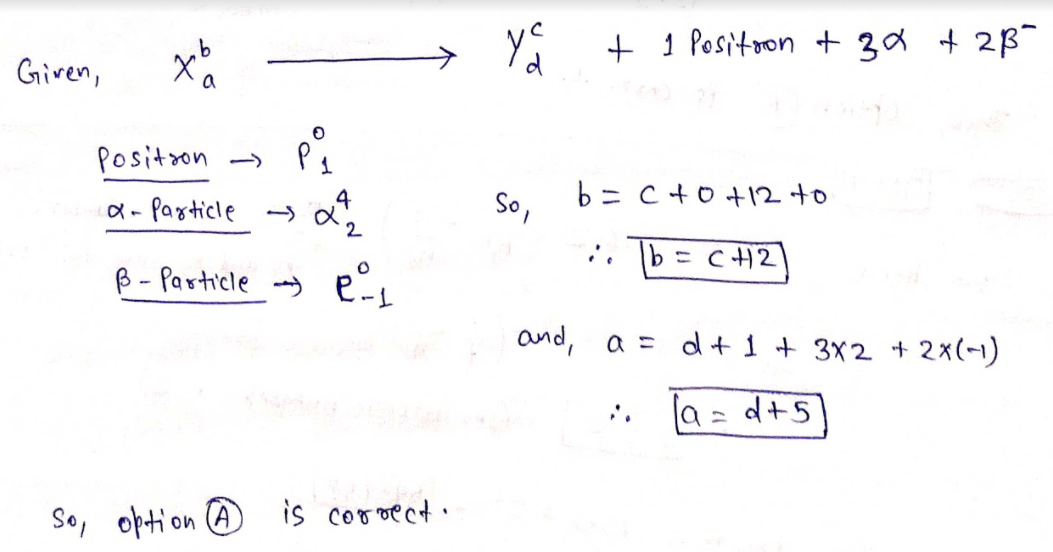 Given, X_a^b ⟶ Y_d^c + 1 Positron + 3α + 2β⁻
Positron → P_1^0
α - Particle → α_2^4
β - Particle → e_{-1}^0
So, b = c + 0 + 12 + 0
∴ b = c + 12
and, a = d + 1 + 3×2 + 2×(-1)
∴ a = d + 5
So, option Ⓐ is correct.